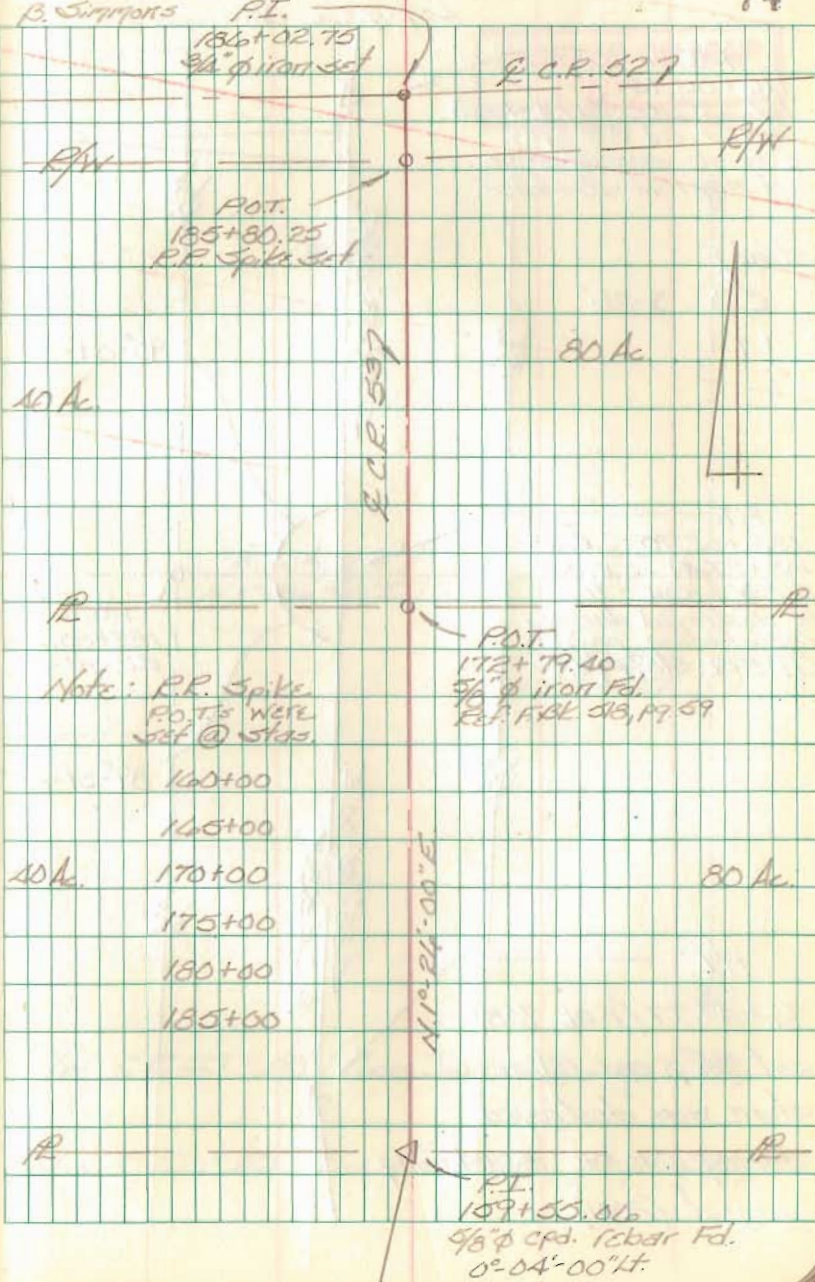 B. Simmons
P.I.
186+02.75
3/4" φ iron set
℄ C.R. 527
R/W
R/W
P.O.T.
185+80.25
R.R. Spike set
80 Ac.
40 Ac.
℄ C.R. 537
PL
PL
P.O.T.
172+79.40
5/8" φ iron Fd.
Ref. F.BK. 518, P9.59
Note: R.R. Spike
P.O.T.'s were
set @ Stas.
160+00
165+00
170+00
175+00
180+00
185+00
40 Ac.
80 Ac.
N.1°-24'-00"E.
PL
PL
P.I.
159+55.06
5/8" φ cpd. rebar Fd.
0°-04'-00" Lt.